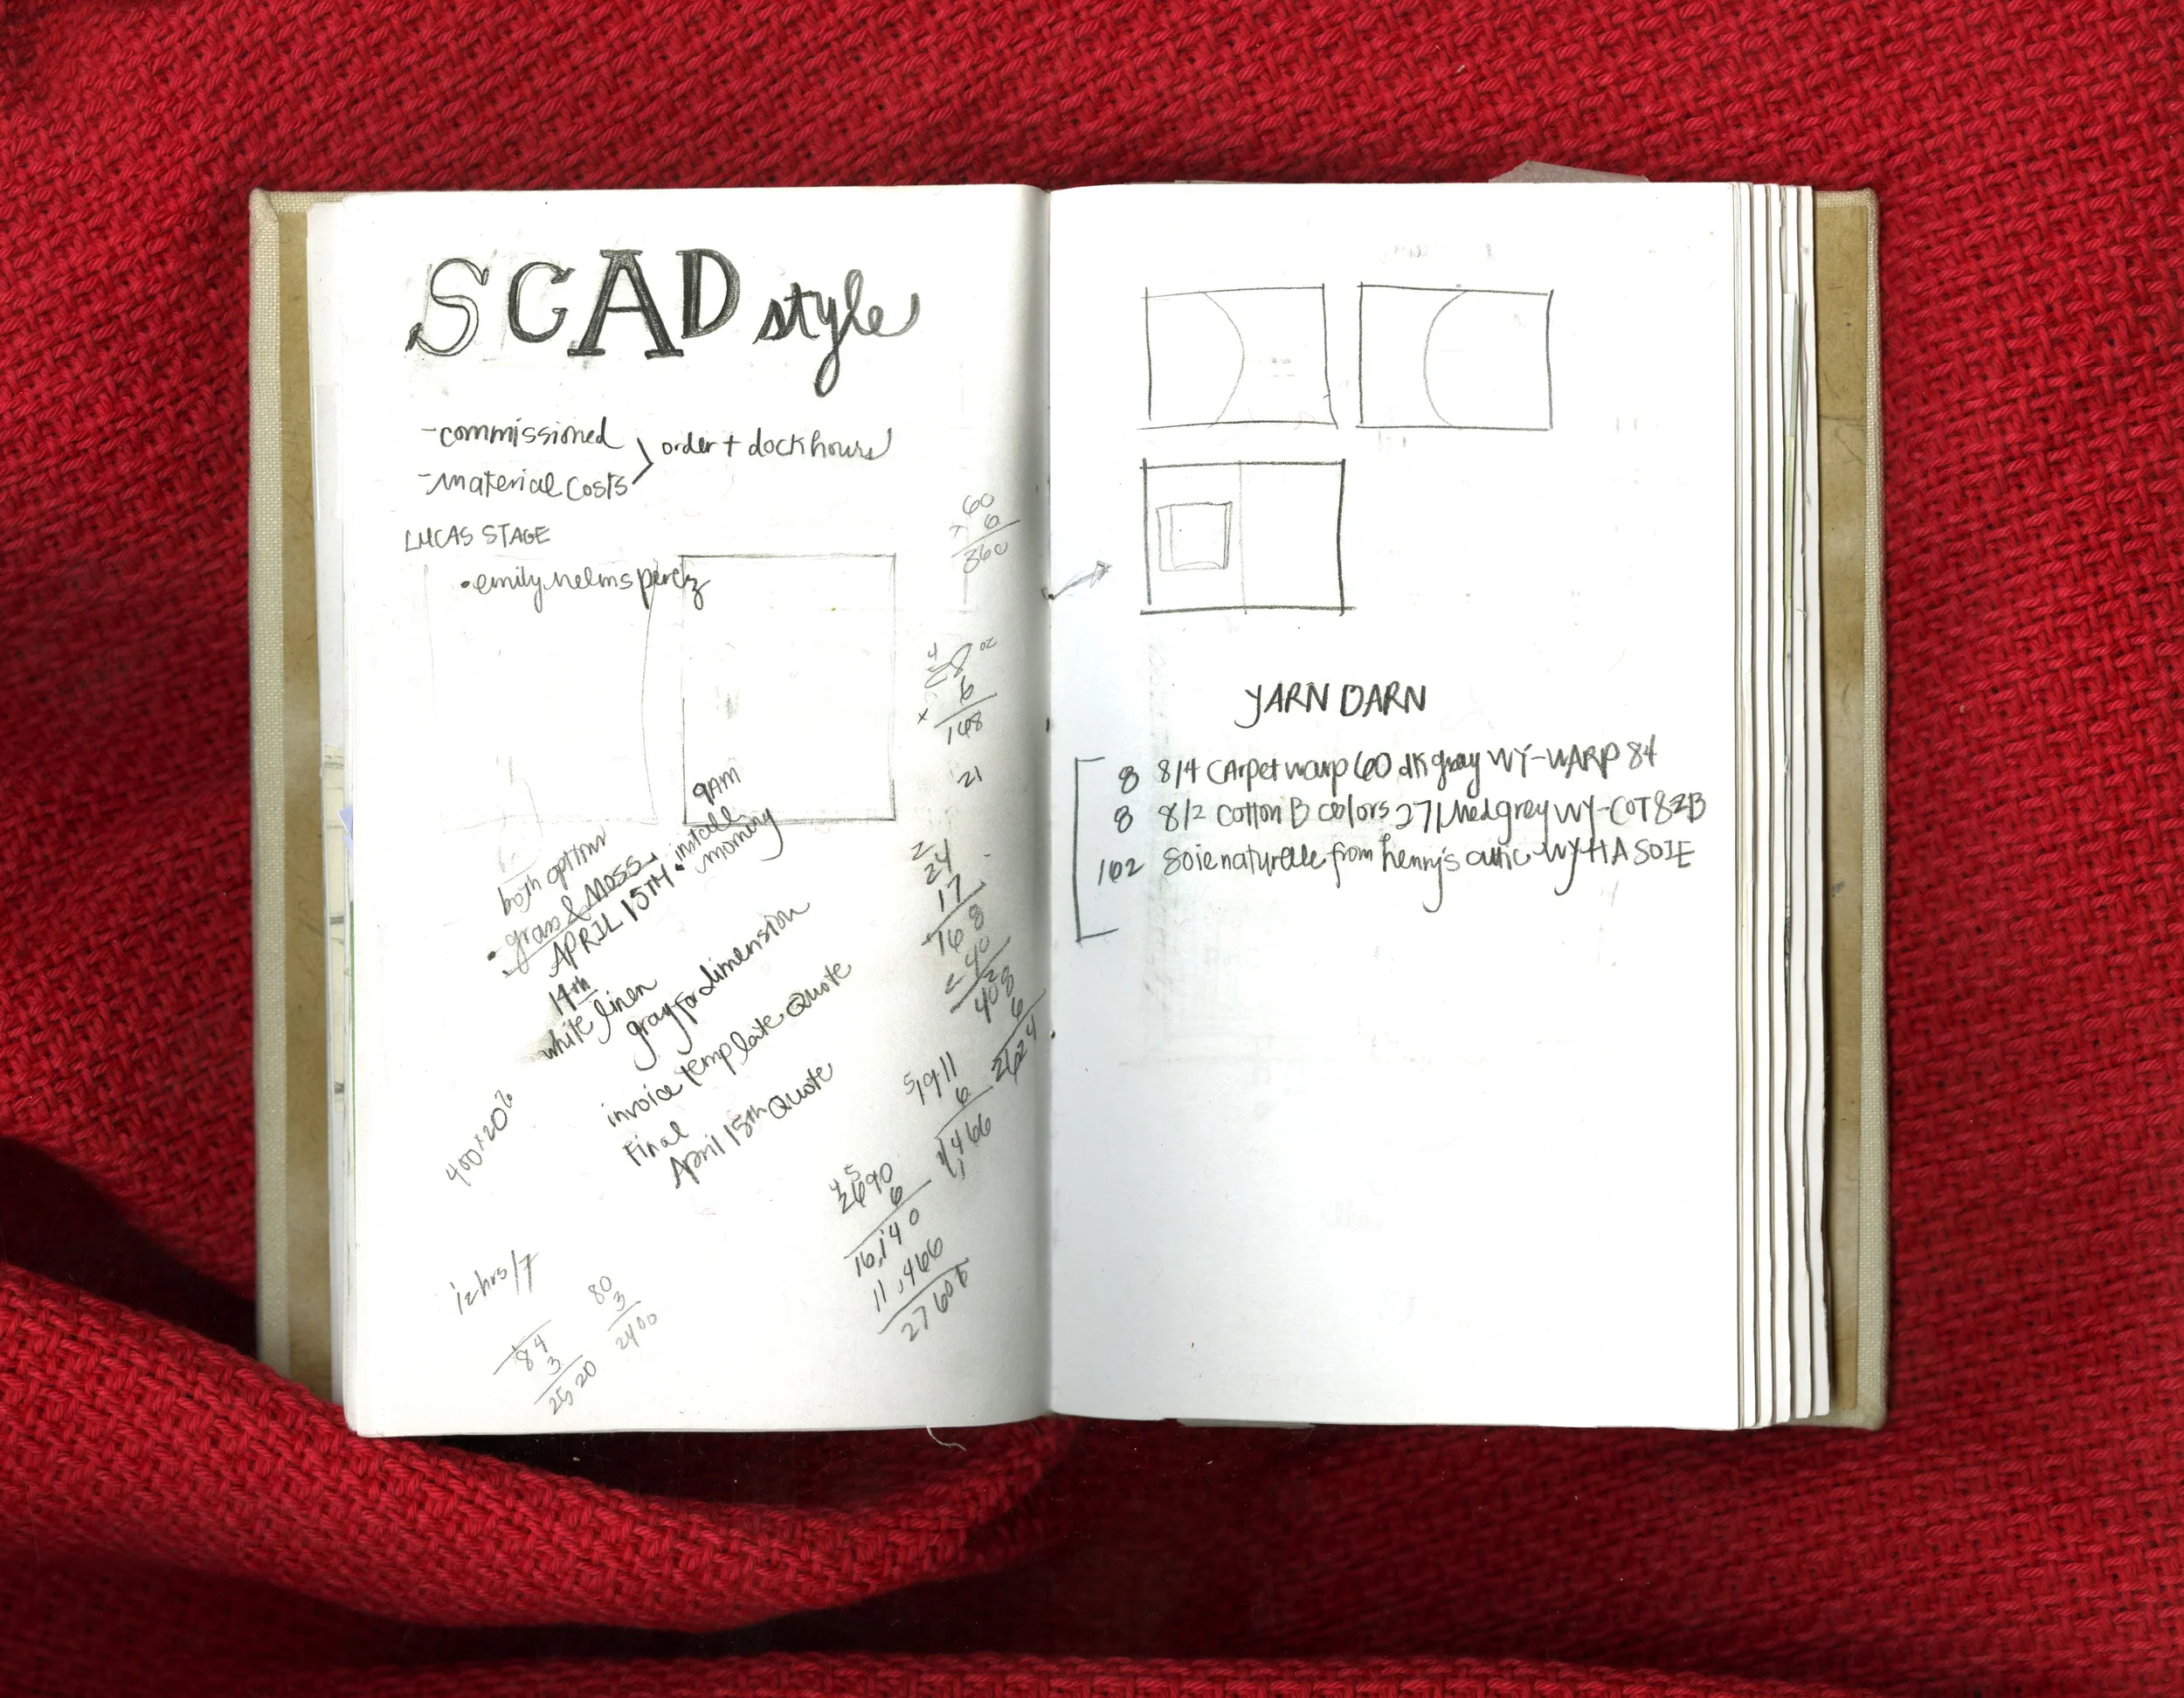 SCAD style
-commissioned
-material costs
order + dock hours
LUCAS STAGE
•emily helms perez
60
x 6
360
6
168
21
both option
• grass & moss.
APRIL 15TH • install
9AM
morning
14th
white linen
gray for dimension
invoice template Quote
Final
April 15th Quote
400x20?
2
24
17
168
240
408
6
2424
5
1911
6
11,466
4 5
2690
6
16,140
11,466
27606
12 hrs/7
84
3
2520
80
3
2400
YARN DARN
8 8/4 carpet warp 60 dk gray WY-WARP 84
8 8/2 cotton B colors 271 Med grey WY-COT82B
102 Soie naturelle from henry's attic WYHASOIE